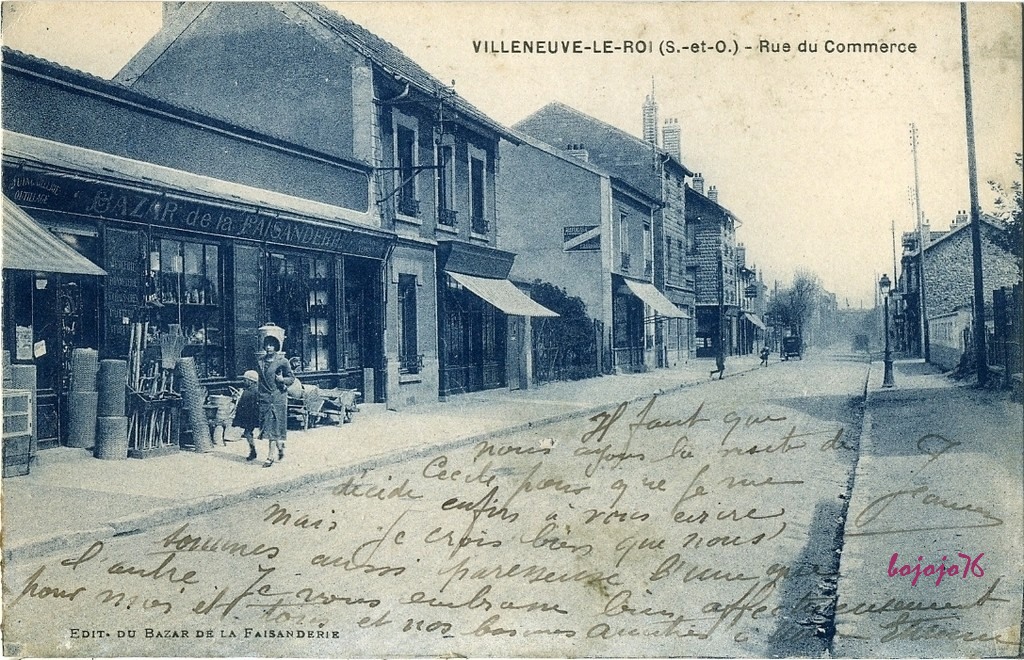 VILLENEUVE-LE-ROI (S.-et-O.) - Rue du Commerce
QUINCAILLERIE
OUTILLAGE
BAZAR de la FAISANDERIE
Il faut que
nous ayons la mort de
Cecile pour que je me
décide enfin à vous ecrire
mais je crois bien que nous
sommes aussi paresseuse l'une que
l'autre Je vous embrasse bien affectueusement
pour moi et et nos bonnes amitiés à Etienne
bojojo76
EDIT. DU BAZAR DE LA FAISANDERIE